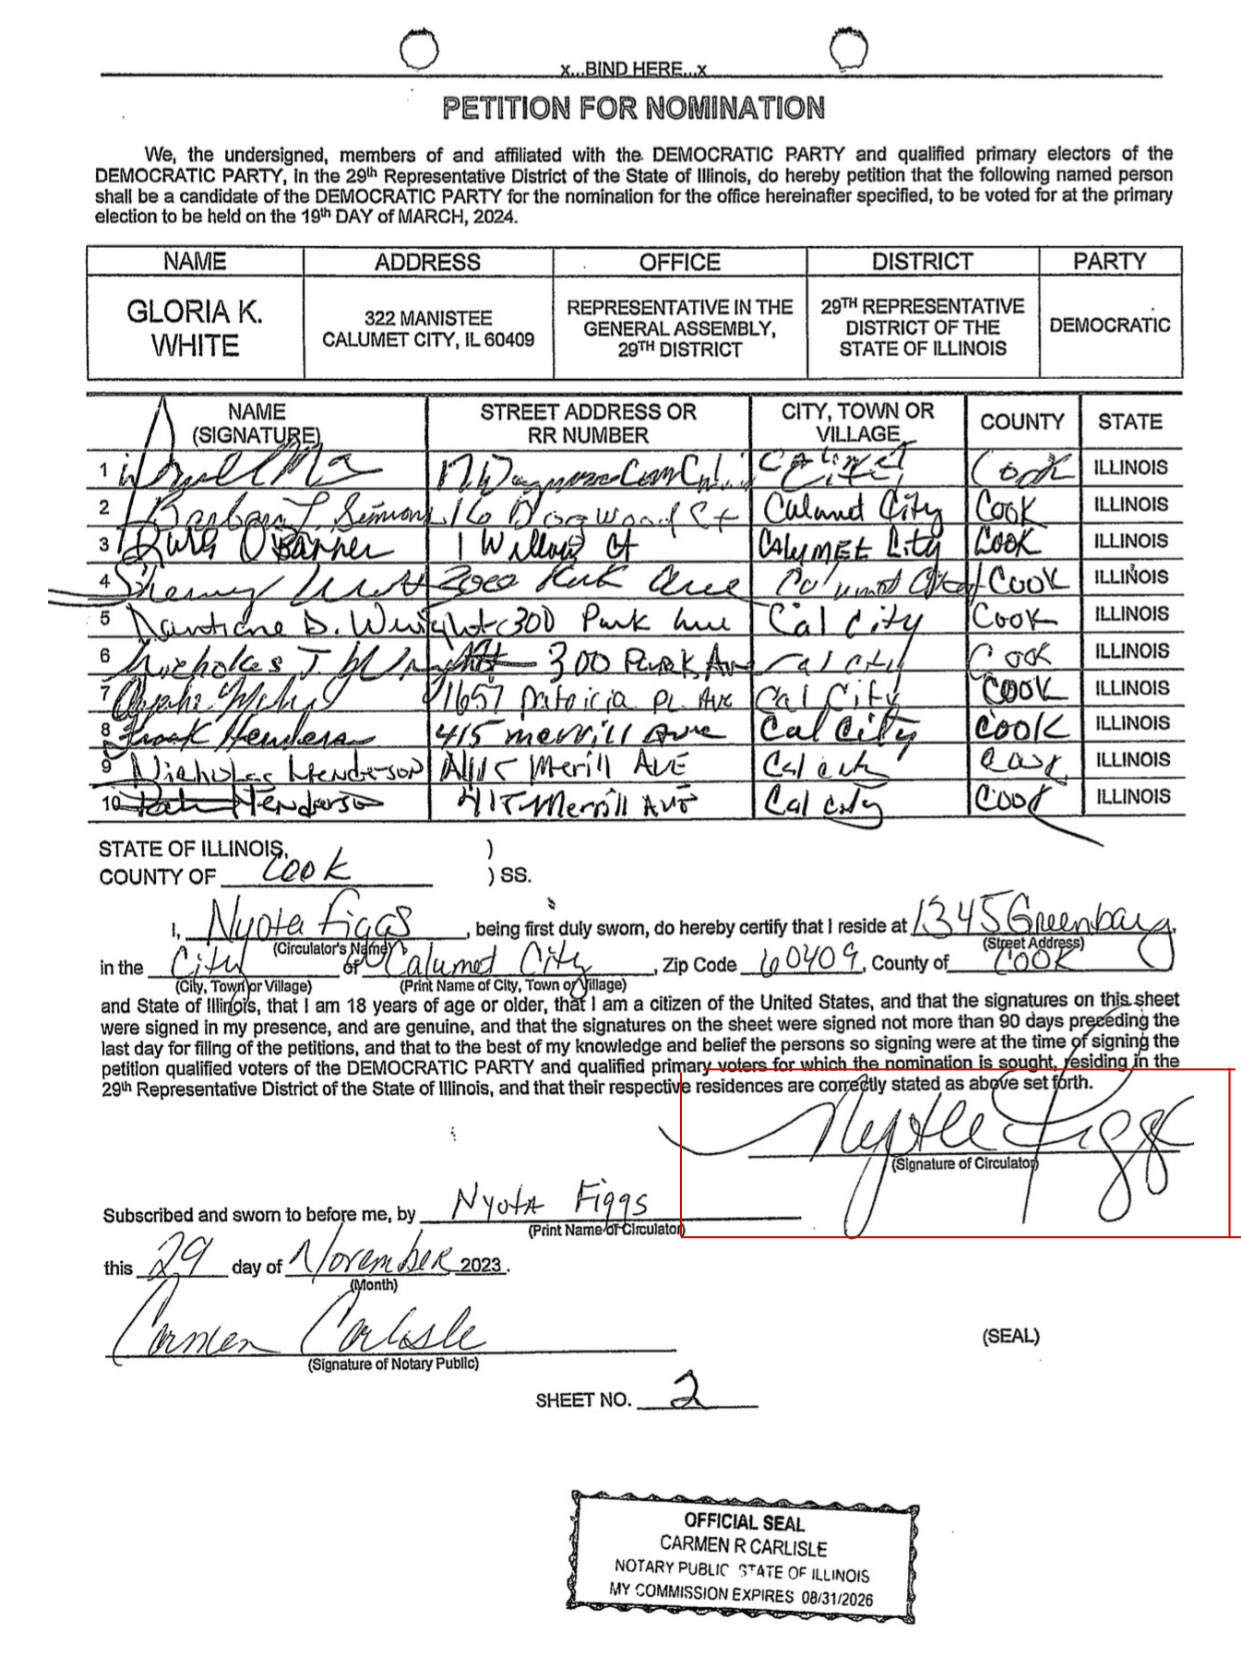 x...BIND HERE...x
PETITION FOR NOMINATION
We, the undersigned, members of and affiliated with the DEMOCRATIC PARTY and qualified primary electors of the
DEMOCRATIC PARTY, in the 29th Representative District of the State of Illinois, do hereby petition that the following named person
shall be a candidate of the DEMOCRATIC PARTY for the nomination for the office hereinafter specified, to be voted for at the primary
election to be held on the 19th DAY of MARCH, 2024.
NAME ADDRESS OFFICE DISTRICT PARTY
GLORIA K. WHITE 322 MANISTEE CALUMET CITY, IL 60409 REPRESENTATIVE IN THE GENERAL ASSEMBLY, 29TH DISTRICT 29TH REPRESENTATIVE DISTRICT OF THE STATE OF ILLINOIS DEMOCRATIC
NAME (SIGNATURE) STREET ADDRESS OR RR NUMBER CITY, TOWN OR VILLAGE COUNTY STATE
1 Cook ILLINOIS
2 Barbara L. Simmons 16 Dogwood Ct City Cook ILLINOIS
3 1 Willow Ct CALUMET City Cook ILLINOIS
4 Cook ILLINOIS
5 D. Wright 300 Park Cal City Cook ILLINOIS
6 Nicholas T. Wright 300 Park Ave Cal City Cook ILLINOIS
7 1657 Patricia PL Ave Cal City Cook ILLINOIS
8 415 merrill Ave Cal City Cook ILLINOIS
9 Nicholas Henderson Merill AVE Cal city ILLINOIS
10 Henderson 415 Merrill AVE Cal city Cook ILLINOIS
STATE OF ILLINOIS, )
COUNTY OF Cook ) SS.
I, Nyota Figgs, being first duly sworn, do hereby certify that I reside at 1345 Greenbay,
(Circulator's Name) (Street Address)
in the City of Calumet City, Zip Code 60409, County of Cook
(City, Town or Village) (Print Name of City, Town or Village)
and State of Illinois, that I am 18 years of age or older, that I am a citizen of the United States, and that the signatures on this sheet
were signed in my presence, and are genuine, and that the signatures on the sheet were signed not more than 90 days preceding the
last day for filing of the petitions, and that to the best of my knowledge and belief the persons so signing were at the time of signing the
petition qualified voters of the DEMOCRATIC PARTY and qualified primary voters for which the nomination is sought, residing in the
29th Representative District of the State of Illinois, and that their respective residences are correctly stated as above set forth.
Figgs
(Signature of Circulator)
Subscribed and sworn to before me, by Nyota Figgs
(Print Name of Circulator)
this 29 day of November 2023.
(Month)
Carmen Carlisle
(Signature of Notary Public)
(SEAL)
SHEET NO. 2
OFFICIAL SEAL
CARMEN R CARLISLE
NOTARY PUBLIC STATE OF ILLINOIS
MY COMMISSION EXPIRES 08/31/2026